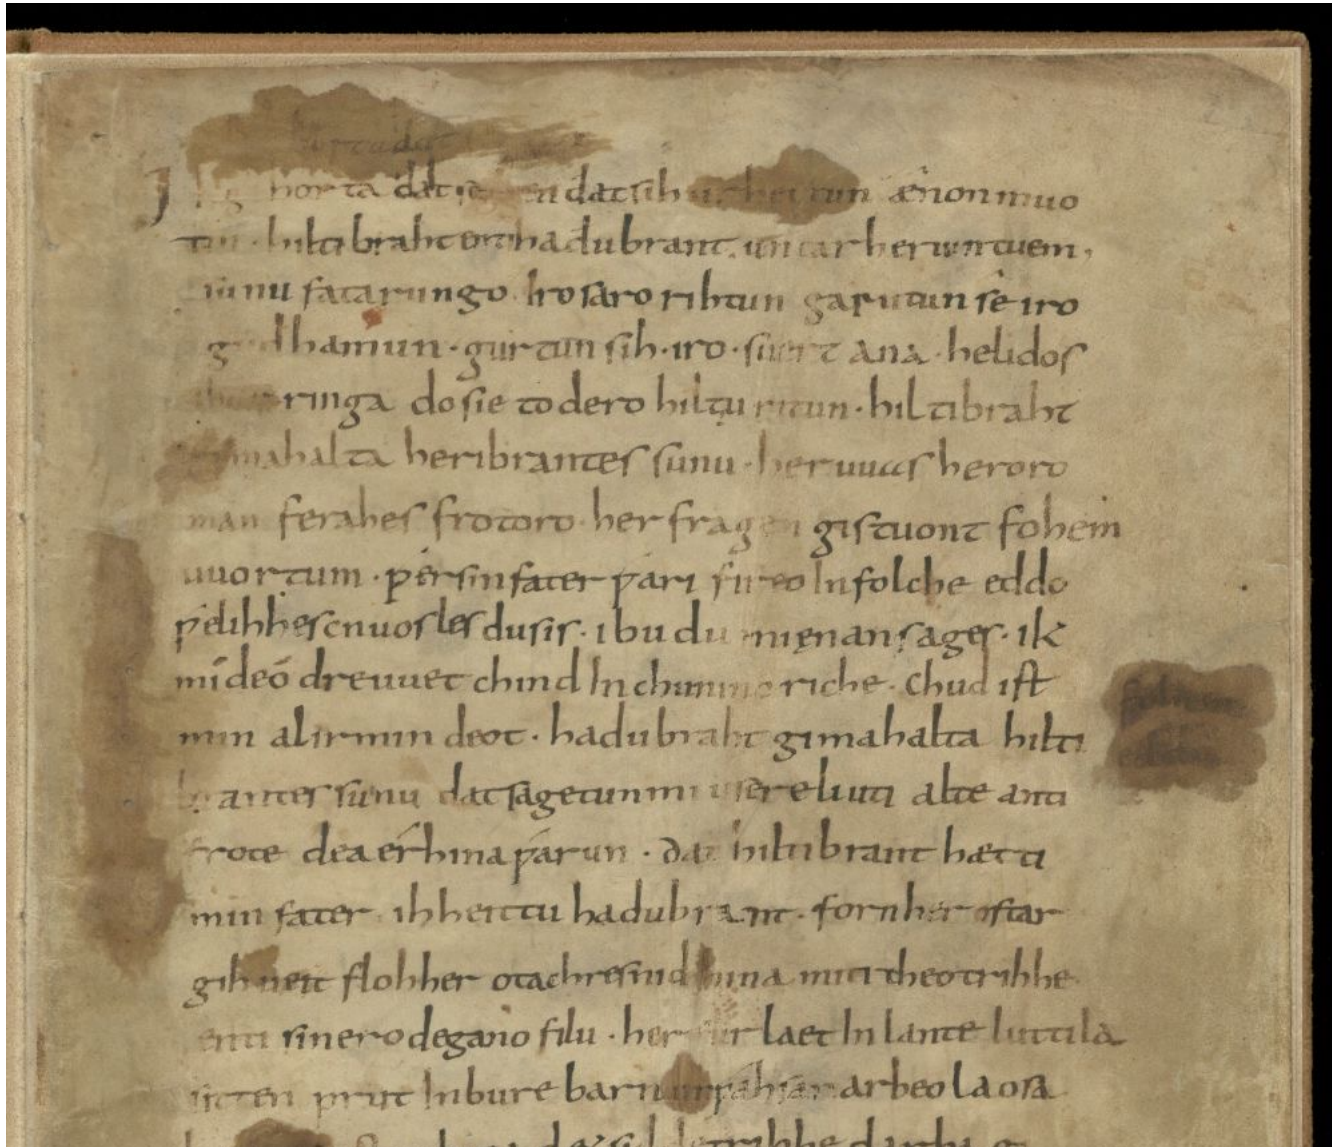 Ik gihorta dat seggen dat sih urhettun ænon muo
tin · hiltibraht enti hadubrant · untar heriun tuem ·
sunu fatarungo · iro saro rihtun garutun se iro
gudhamun · gurtun sih · iro · suert ana · helidos
ringa do sie to dero hiltu ritun · hiltibraht
gimahalta heribrantes sunu · her uuas heroro
man ferahes frotoro · her fragen gistuont fohem
uuortum · ƿer sin fater ƿari fireo In folche eddo
ƿelihhes cnuosles du sis · ibu du mi ęnan sages · ik
mi deo dre uuet chind In chunincriche · Chud ist
min al irmin deot · hadubraht gimahalta hilti
brantes sunu dat sagetun mi usere liuti alte anti
frote dea erhina ƿarun · dat hiltibrant hætti
min fater · ih heittu hadubrant · forn her ostar
gihueit floh her otachres nid hina miti theotrihhe
enti sinero degano filu · her furlaet In lante luttila
sitten prut In bure barn unƿahsan arbeo laosa